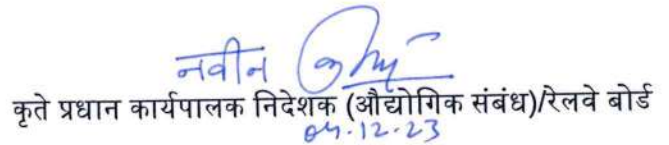 नवीन कुमार
कृते प्रधान कार्यपालक निदेशक (औद्योगिक संबंध)/रेलवे बोर्ड
04.12.23